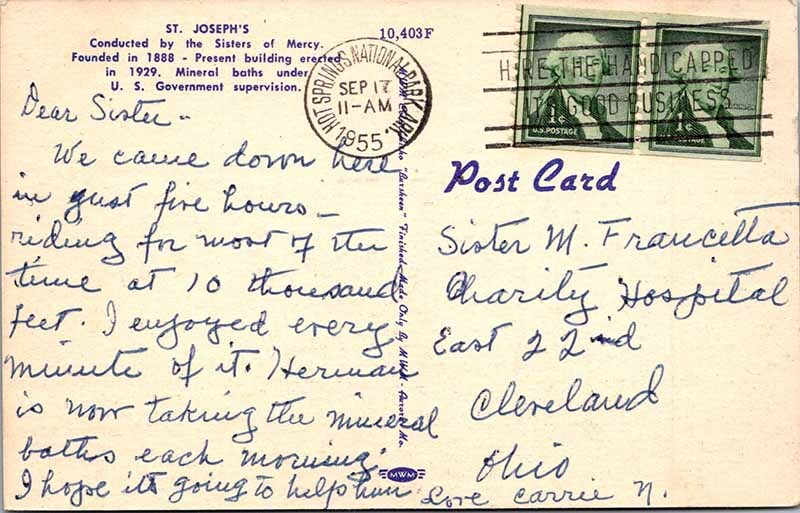 ST. JOSEPH'S
Conducted by the Sisters of Mercy.
Founded in 1888 - Present building erected
in 1929. Mineral baths under
U. S. Government supervision.
10,403F
HOT SPRINGS NATIONAL PARK, ARK.
SEP 17
11-AM
1955
HIRE THE HANDICAPPED
IT'S GOOD BUSINESS
1¢
U.S. POSTAGE
1¢
U.S. POSTAGE
Dear Sister -
We came down here
in just five hours -
riding for most of the
time at 10 thousand
feet. I enjoyed every
minute of it. Herman
is now taking the mineral
baths each morning.
I hope its going to help him
Love Carrie N.
Post Card
Sister M. Francetta
Charity Hospital
East 22nd
Cleveland
Ohio
"Darsheen" Finished Made Only By MWM - Aurora, Mo.
MWM